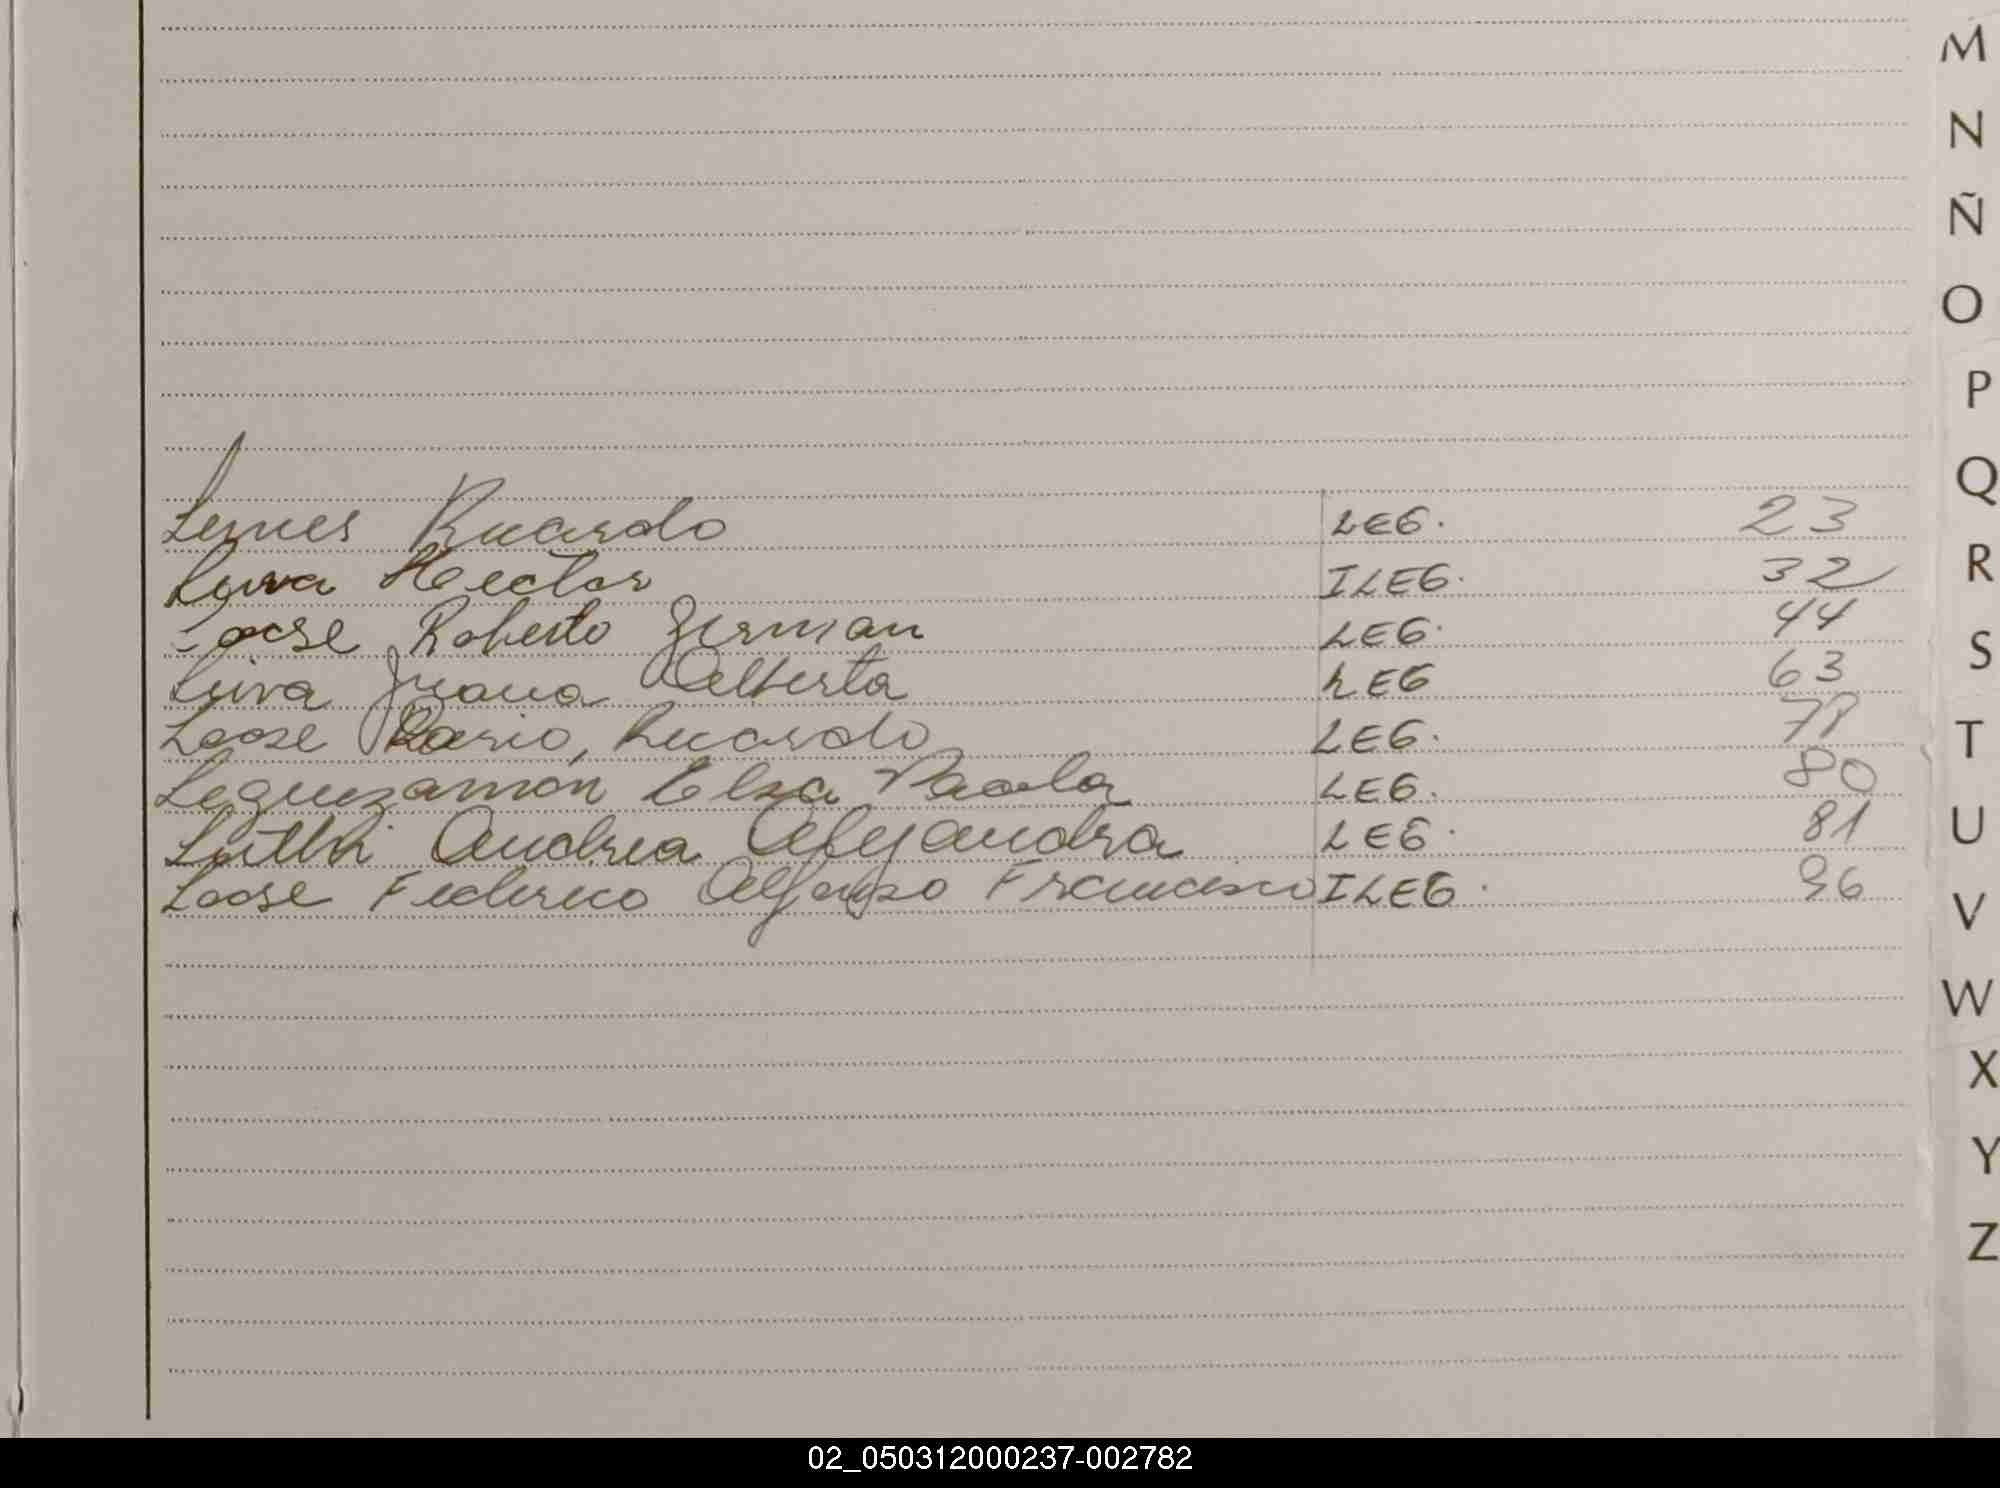 Lemes Ricardo LEG. 23
Leiva Hector ILEG. 32
Loose Roberto German LEG. 44
Leiva Juana Alberta LEG 63
Loose Dario, Ricardo LEG. 78
Leguizamón Elsa Paola LEG. 80
Lüthi Andrea Alejandra LEG. 81
Loose Federico Alfonso Francisco ILEG. 96
M
N
Ñ
O
P
Q
R
S
T
U
V
W
X
Y
Z
02_050312000237-002782